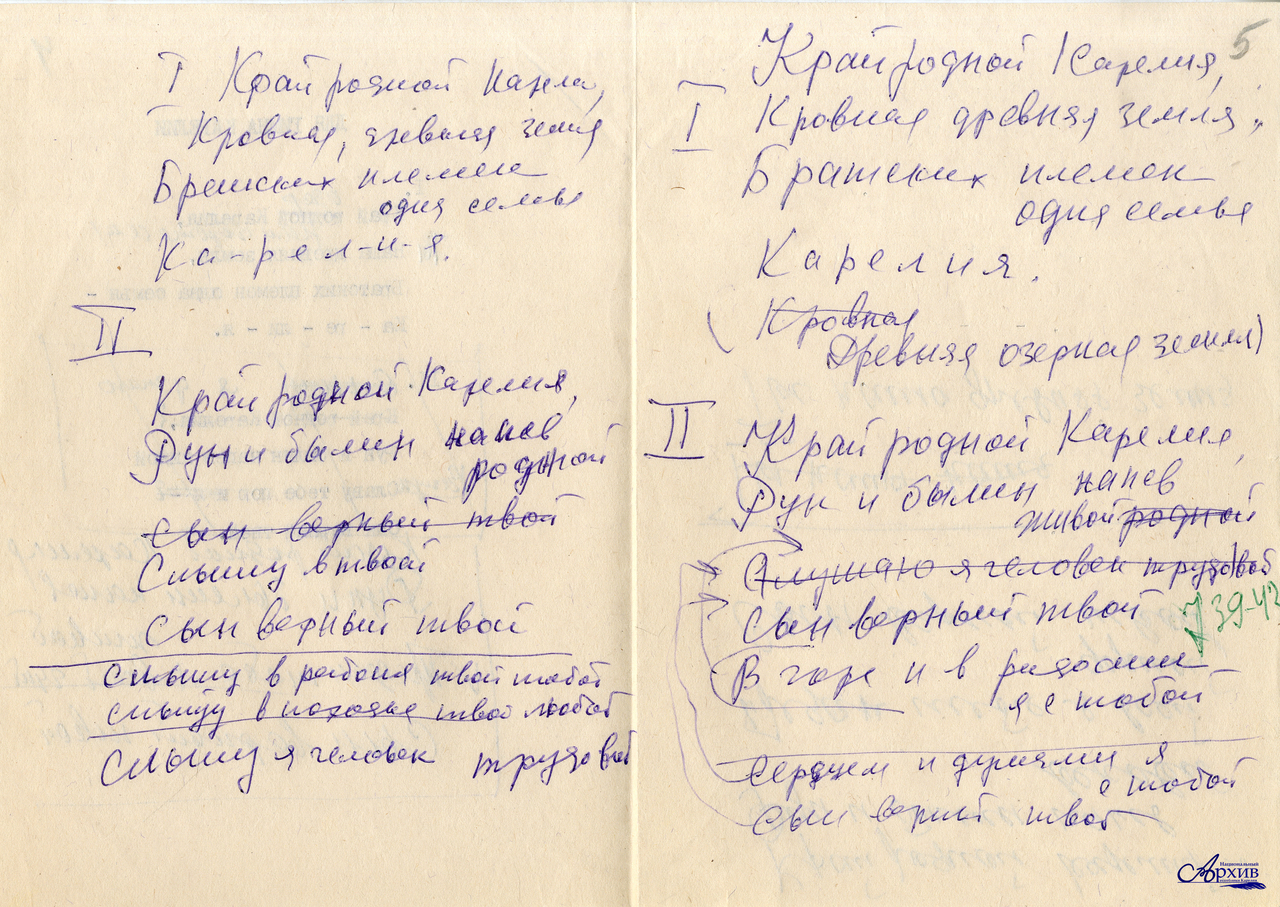 I Край родной Карели,
Кровная, древняя земля
Братских племен
одна семья
Ка-рел-и-я.
II
Край родной Карелия,
Рун и былин напев
родной
Сын верный твой
Слышу
Сын верный твой
слышу в работе твой
слышу в твой
Слышу я человек трудовой
5
Край родной Карелия,
I Кровная древняя земля,
Братских племен
одна семья
Карелия.
(Кровная
Древняя озерная земля)
II Край родной Карелия,
Рун и былин напев
живой родной
Слушаю я человек трудовой
Сын верный твой
39-43
В горе и в радости
я с тобой
Сердцем и думами я
с тобой
Сын верный твой
Национальный
Архив